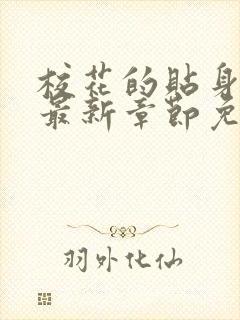 校花的贴身
最新章节免
羽外化仙